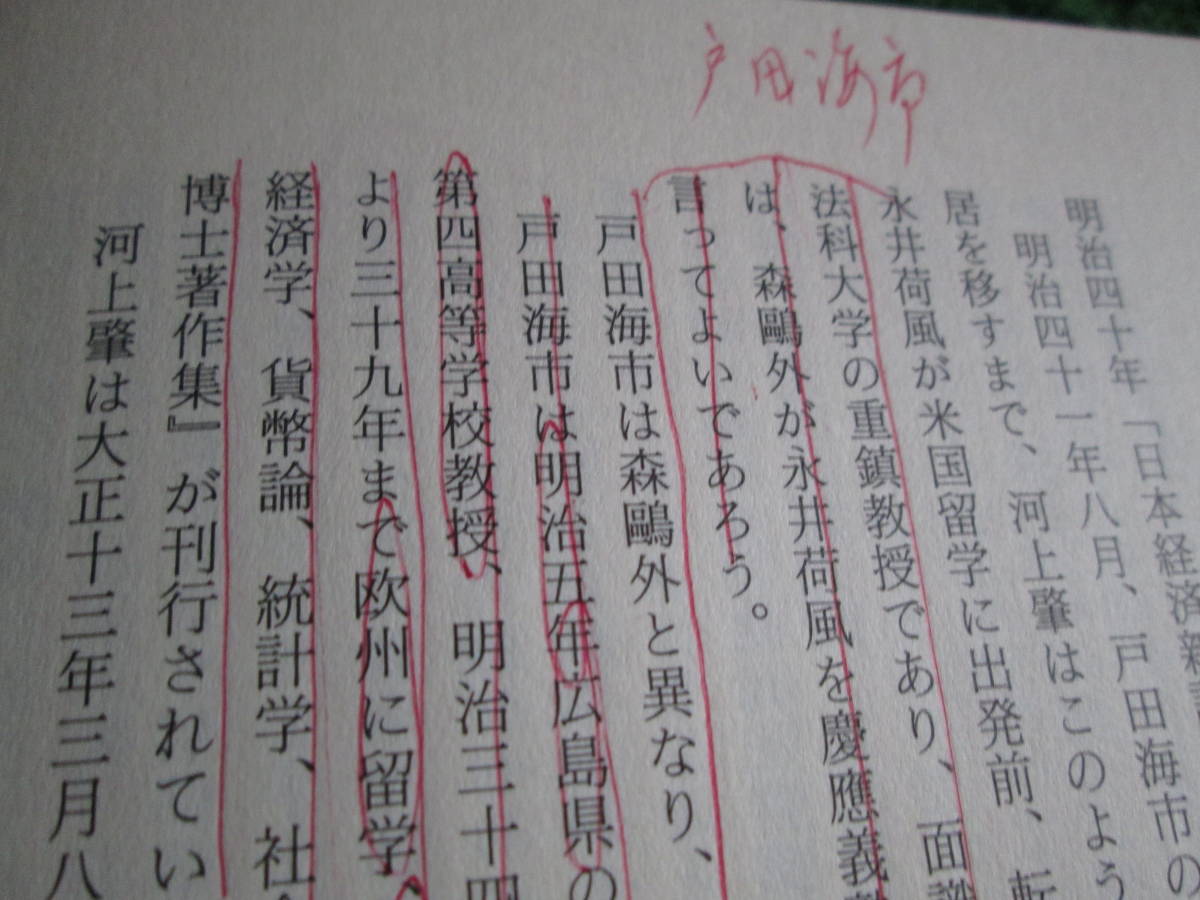 戸田海市
明治四十年「日本経済新
明治四十一年八月、戸田海市の
居を移すまで、河上肇はこのよう
永井荷風が米国留学に出発前、転
法科大学の重鎮教授であり、面識
は、森鷗外が永井荷風を慶應義塾
言ってよいであろう。
戸田海市は森鷗外と異なり、
戸田海市は明治五年広島県の
第四高等学校教授、明治三十四
より三十九年まで欧州に留学、
経済学、貨幣論、統計学、社会
博士著作集』が刊行されてい
河上肇は大正十三年三月八